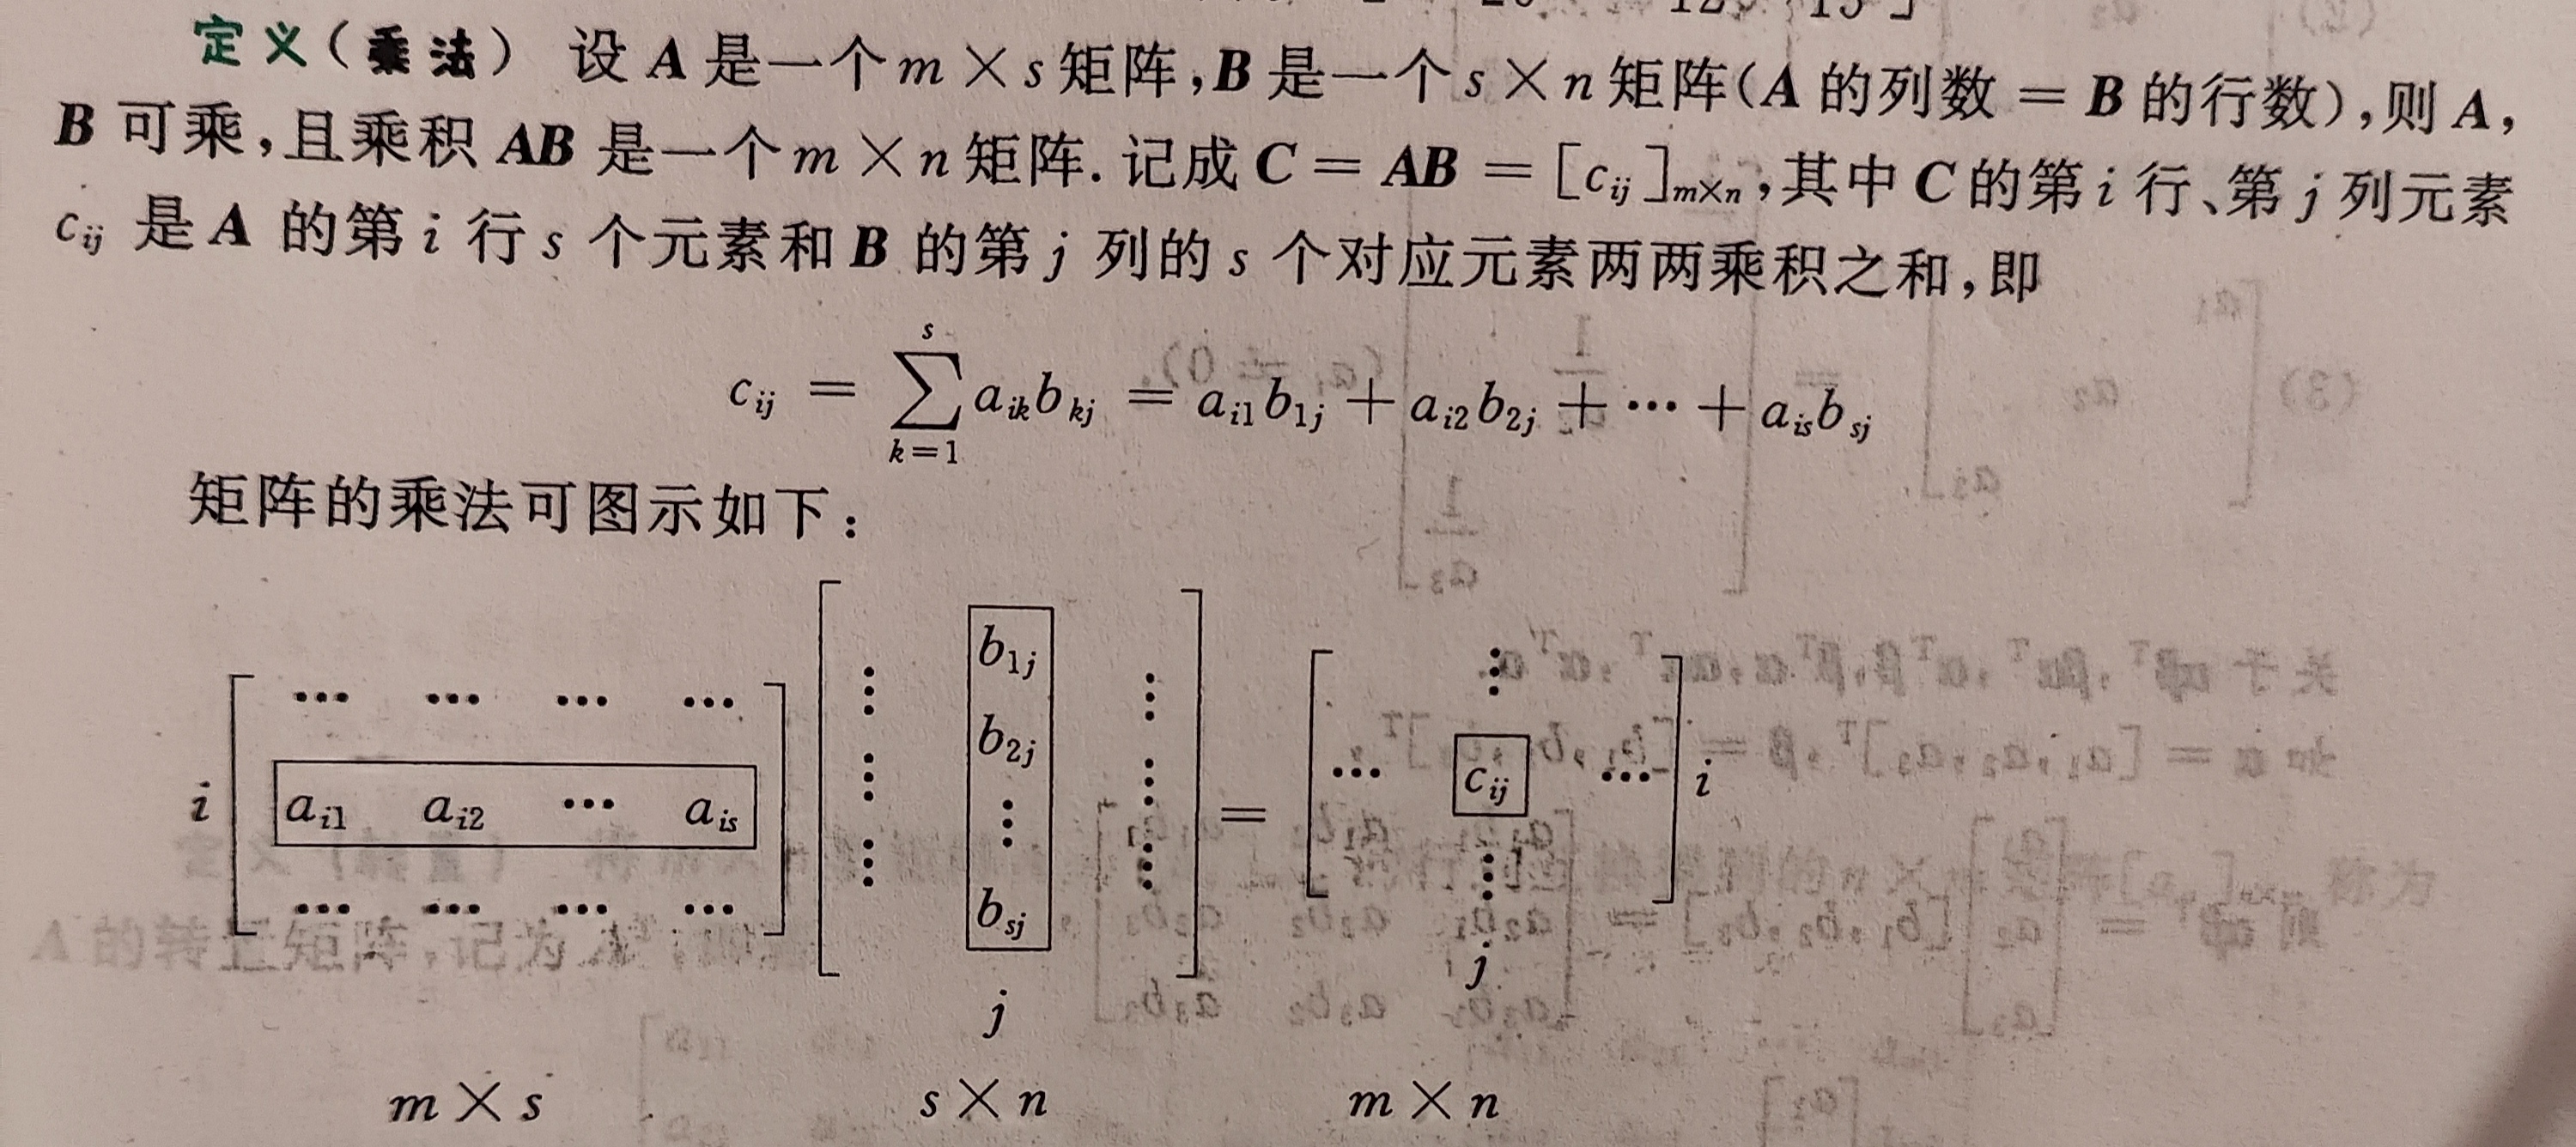 定义(乘法) 设 A 是一个 m × s 矩阵,B 是一个 s × n 矩阵(A 的列数 = B 的行数),则 A,
B 可乘,且乘积 AB 是一个 m × n 矩阵. 记成 C = AB = [c_{ij}]_{m×n},其中 C 的第 i 行、第 j 列元素
c_{ij} 是 A 的第 i 行 s 个元素和 B 的第 j 列的 s 个对应元素两两乘积之和,即
c_{ij} = \sum_{k=1}^{s} a_{ik}b_{kj} = a_{i1}b_{1j} + a_{i2}b_{2j} + ⋯ + a_{is}b_{sj}
矩阵的乘法可图示如下:
i [ ⋯ ⋯ ⋯ ⋯
a_{i1} a_{i2} ⋯ a_{is}
⋯ ⋯ ⋯ ⋯ ]
[ ⋮ b_{1j} ⋮
⋮ b_{2j} ⋮
⋮ ⋮ ⋮
b_{sj} ]
j
=
[ ⋮
⋯ c_{ij} ⋯
⋮ ] i
j
m × s s × n m × n